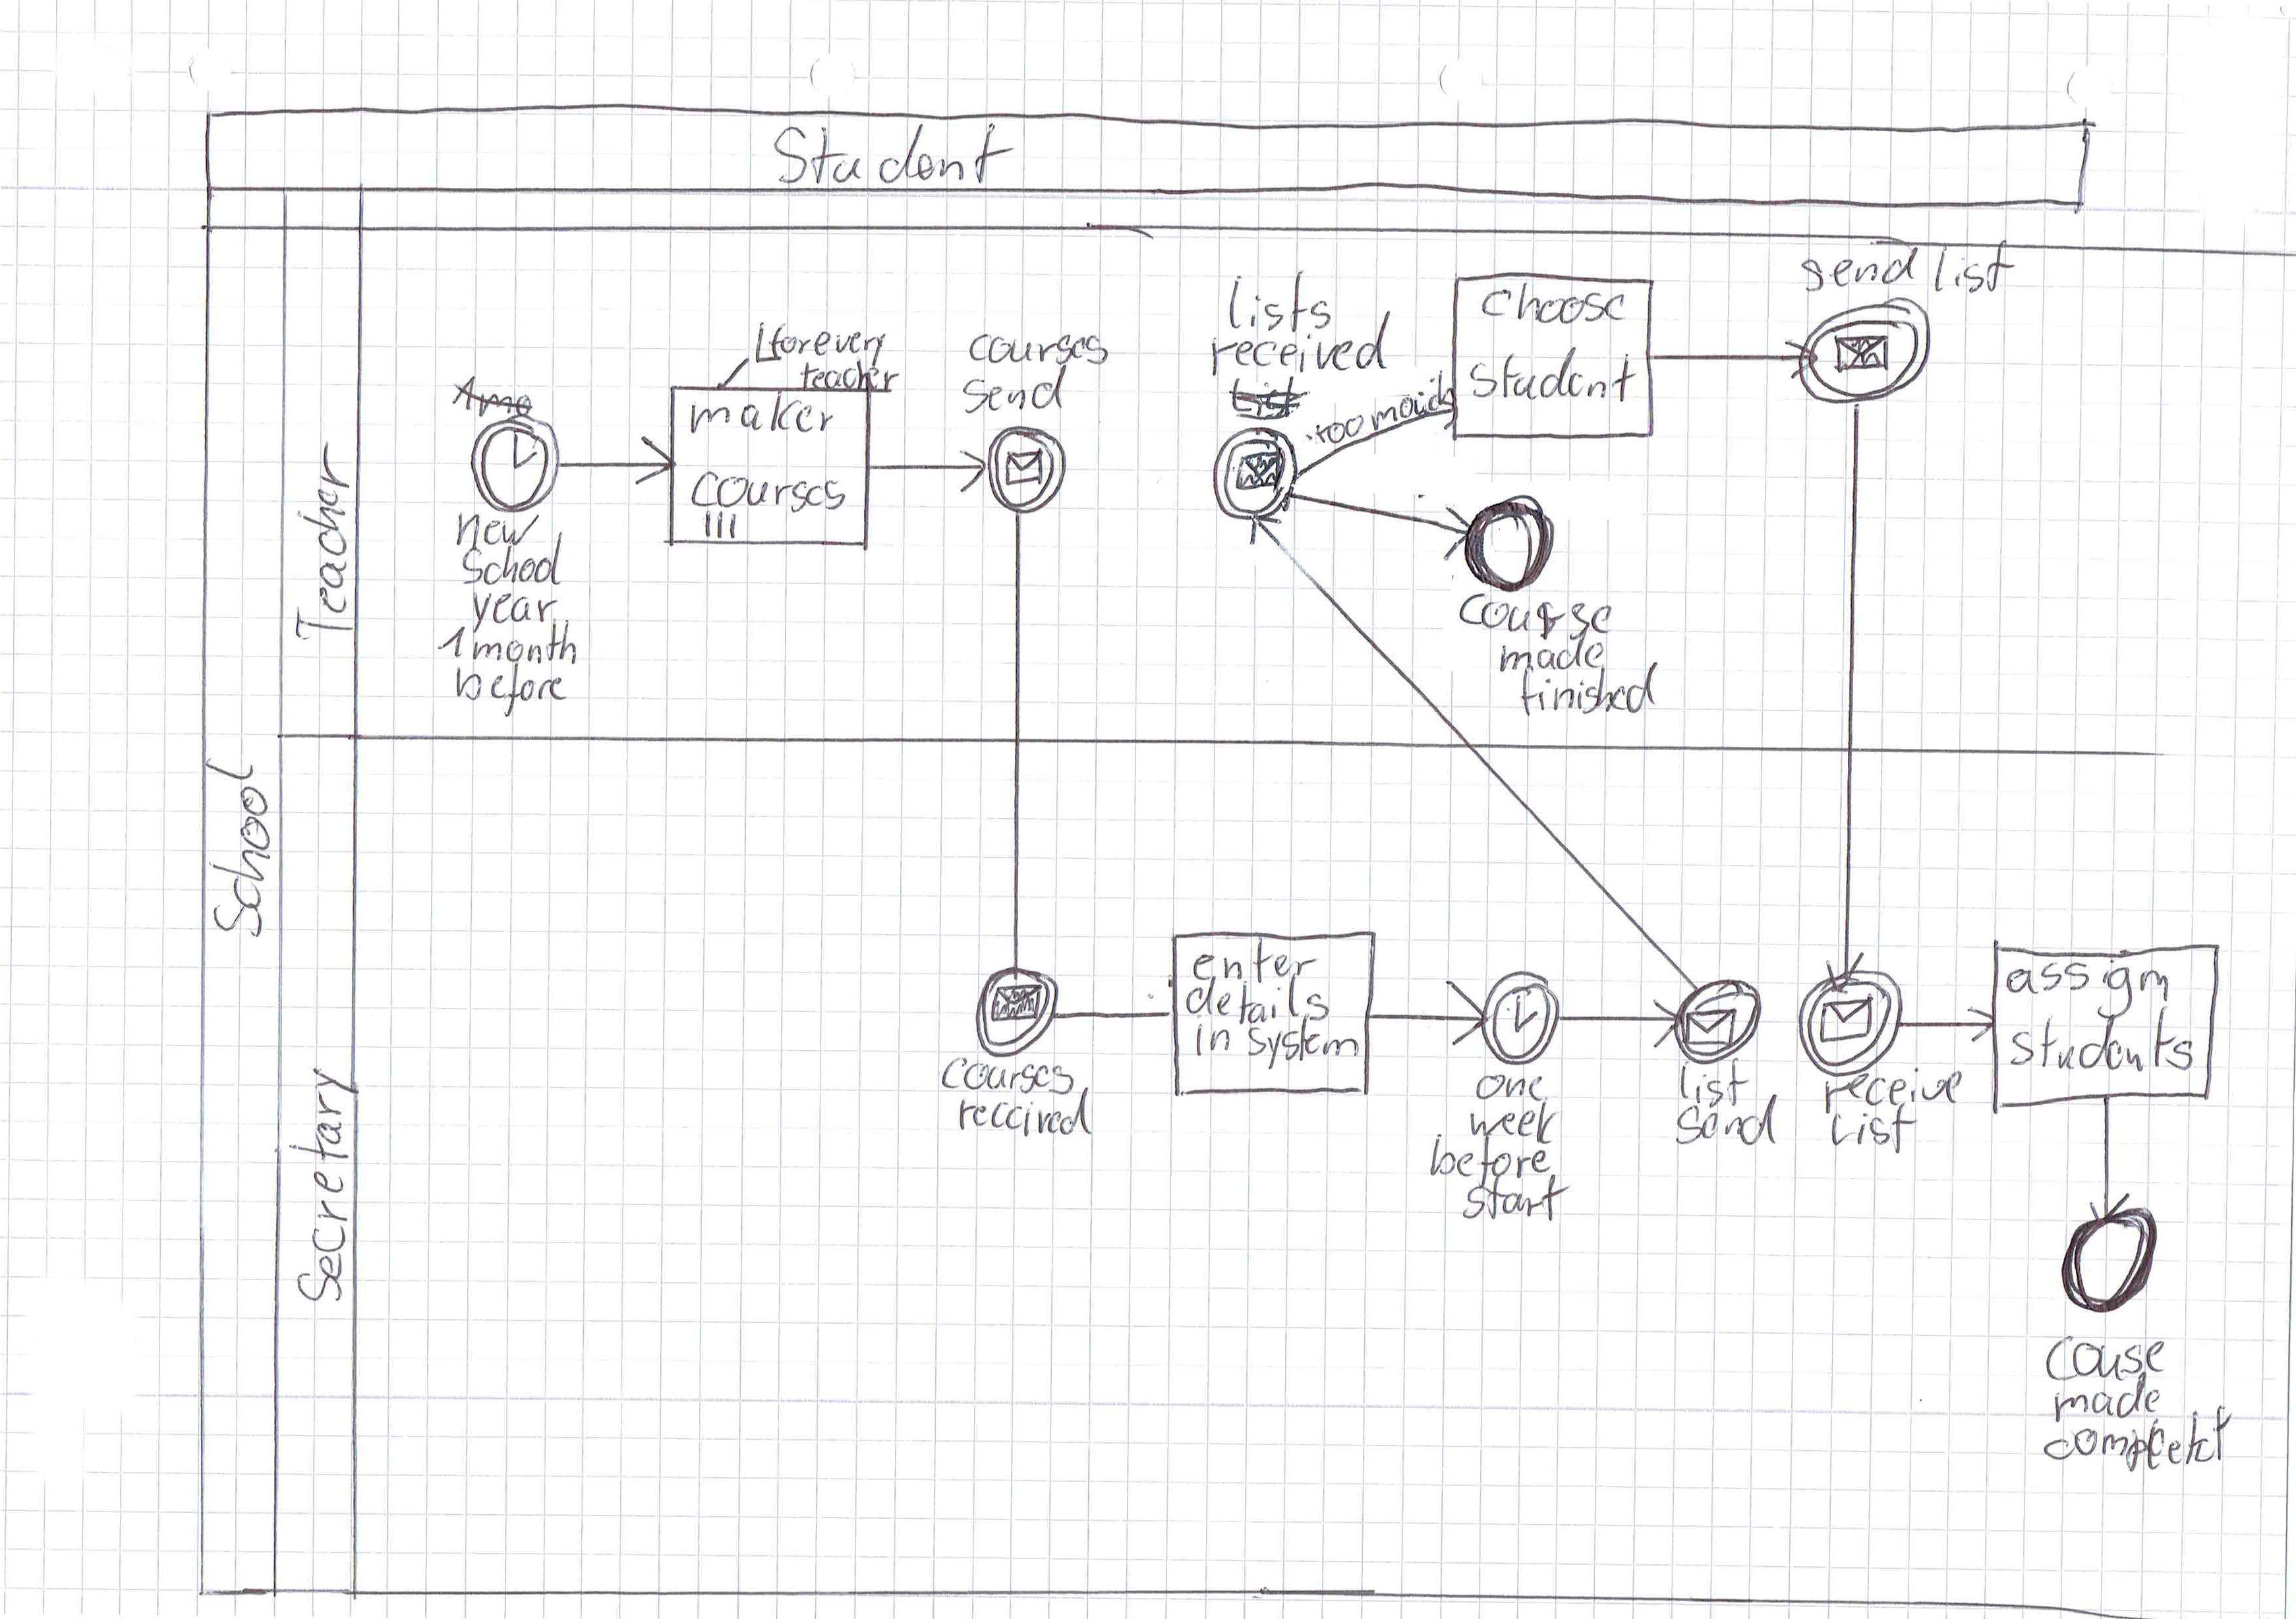 Student
School
Teacher
Secretary
new
School
year
1 month
before
for every
teacher
maker
courses
courses
send
lists
received
List
too mouch
choose
student
send list
course
made
finished
courses
received
enter
details
in system
one
week
before
start
list
send
receive
List
assigm
students
couse
made